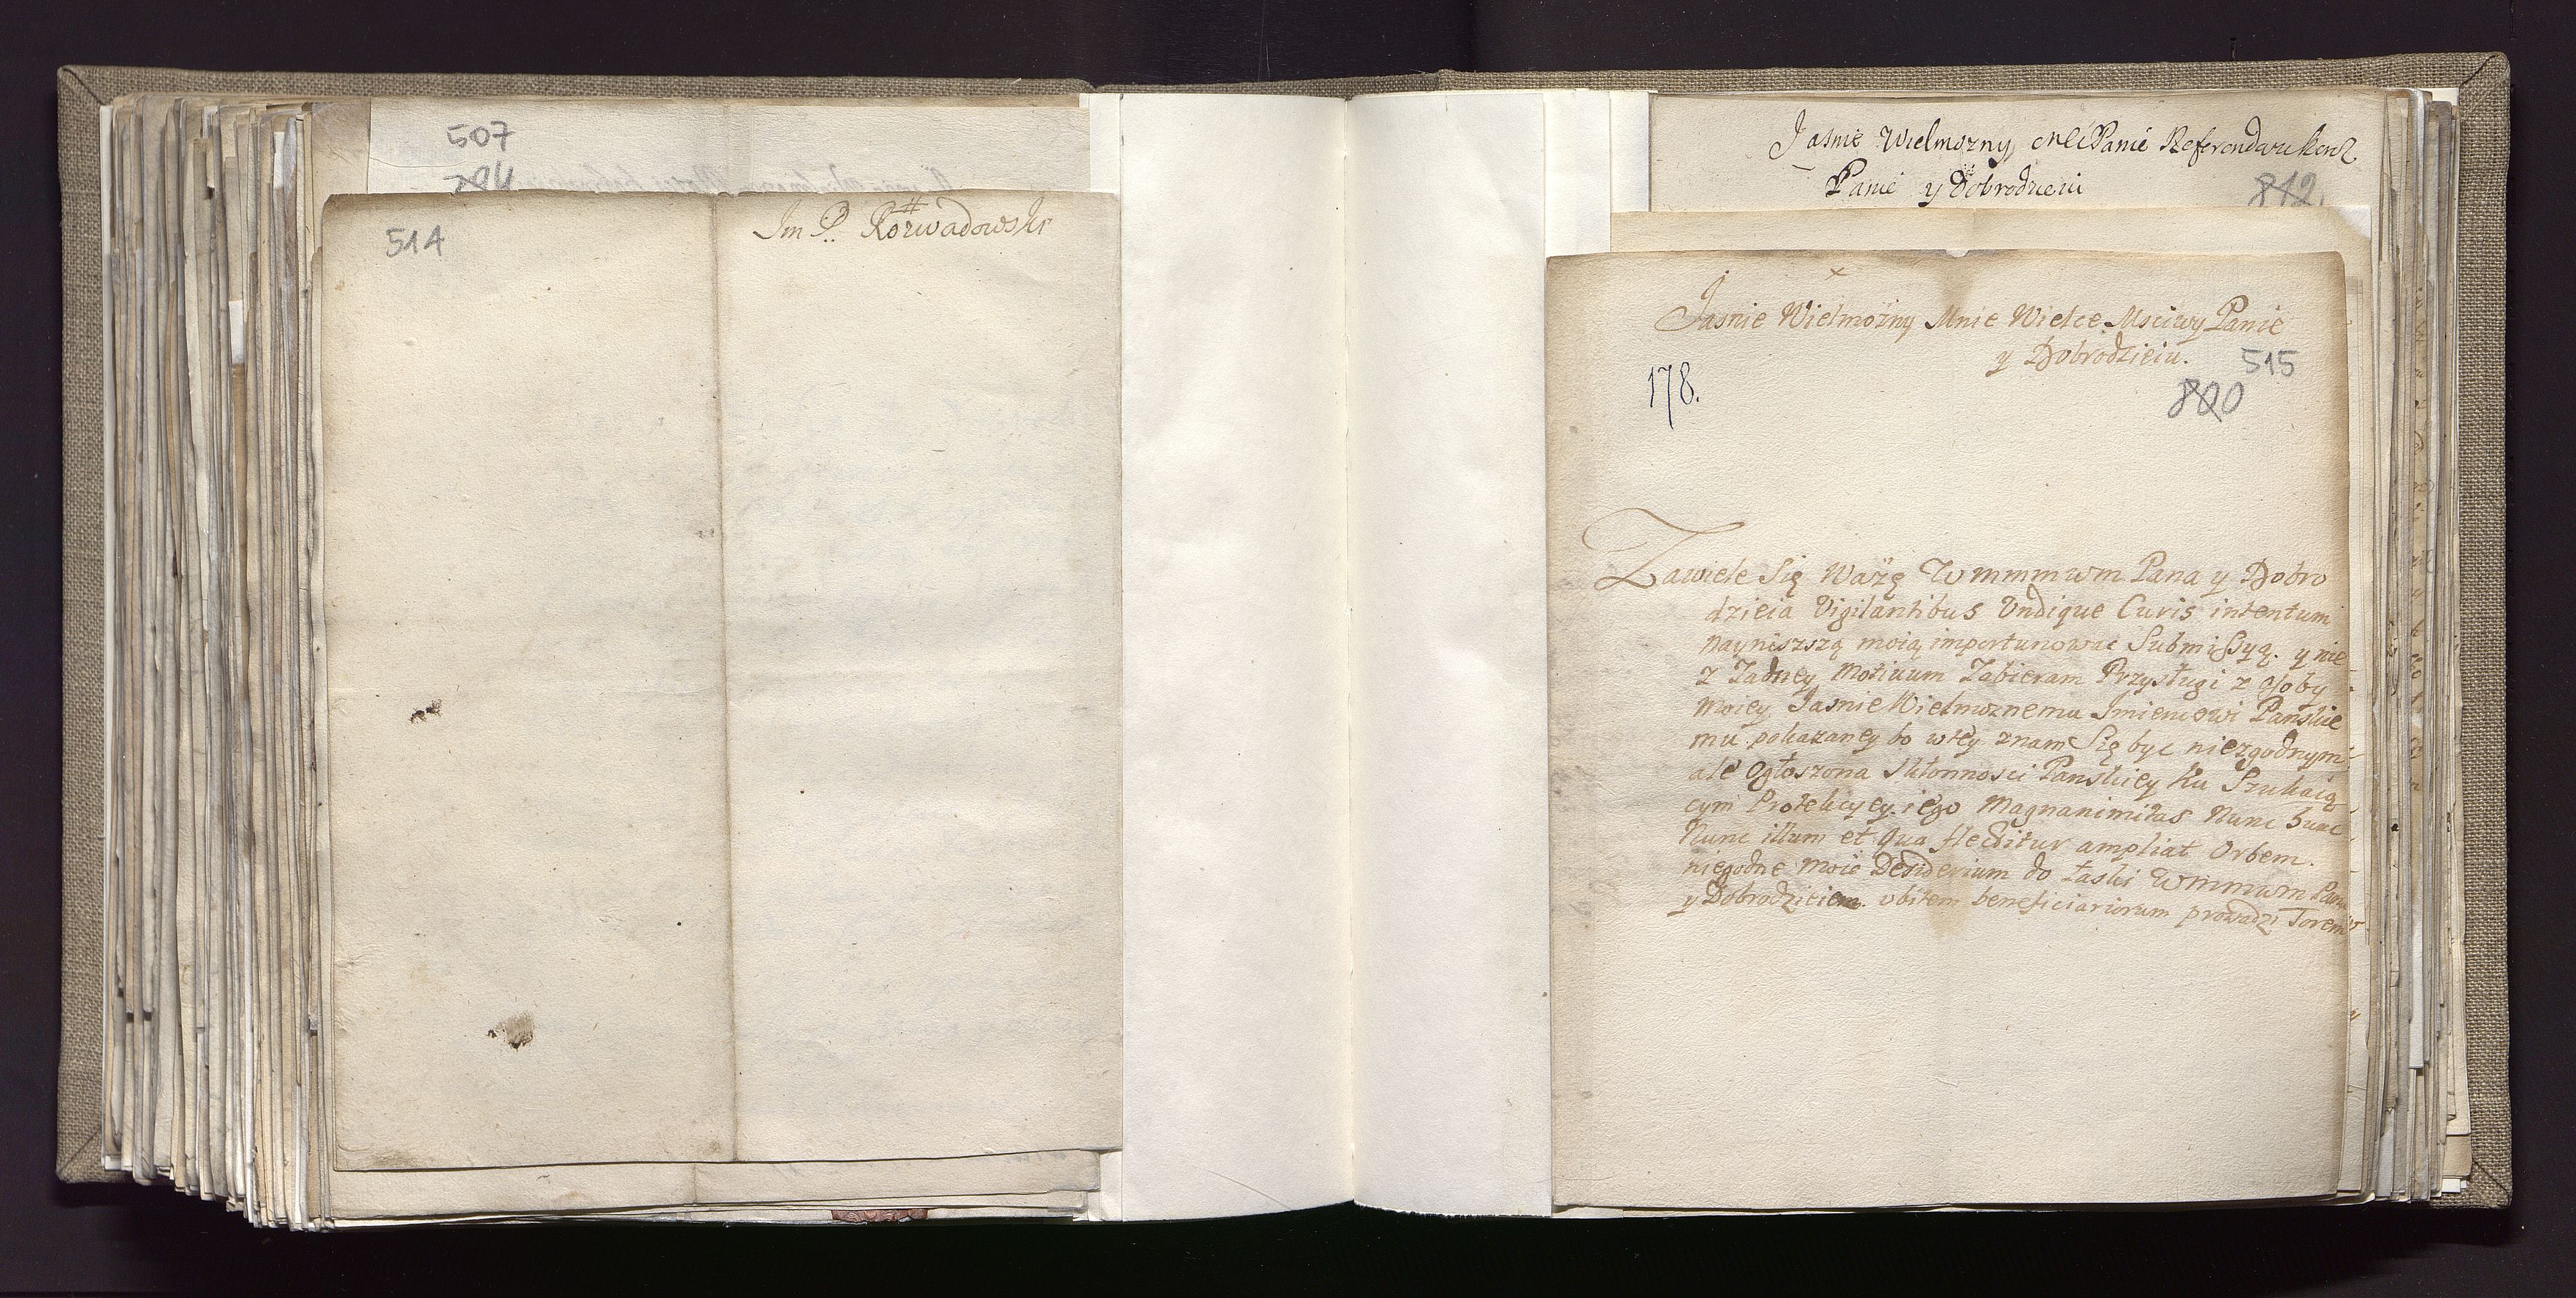 507
514
Im P. Rozwadowski
Jasnie Wielmozny Panie
Panie y Dobrodzieiu
812
Jasnie Wielmozny Mnie Wielce Msciwy Panie
y Dobrodzieiu.
515
800
178.
Zawiele Się Wazę Wmmmwm Pana y Dobro
dzieia Vigilantibus Vndique Curis intentum
nayniszszą moią importunowac Submissyą. y nie
z Zadney Motiuum Zabieram Przysługi z osoby
moiey Jasnie Wielmoznemu Jmieniowi Panskie
mu pokazaney bo wtey znam Się byc niezgodnym
ale Ogłoszona Skłonnosci Panskiey Ku Szukaią
cym Protekcyey iego Magnanimitas Nunc hunc
Nunc illum et Qua flectitur ampliat Orbem.
niegodne moie Desiderium do łaski Wmmmwm Pana
y Dobrodzieia vbitem beneficiariorum prowadzi Torem